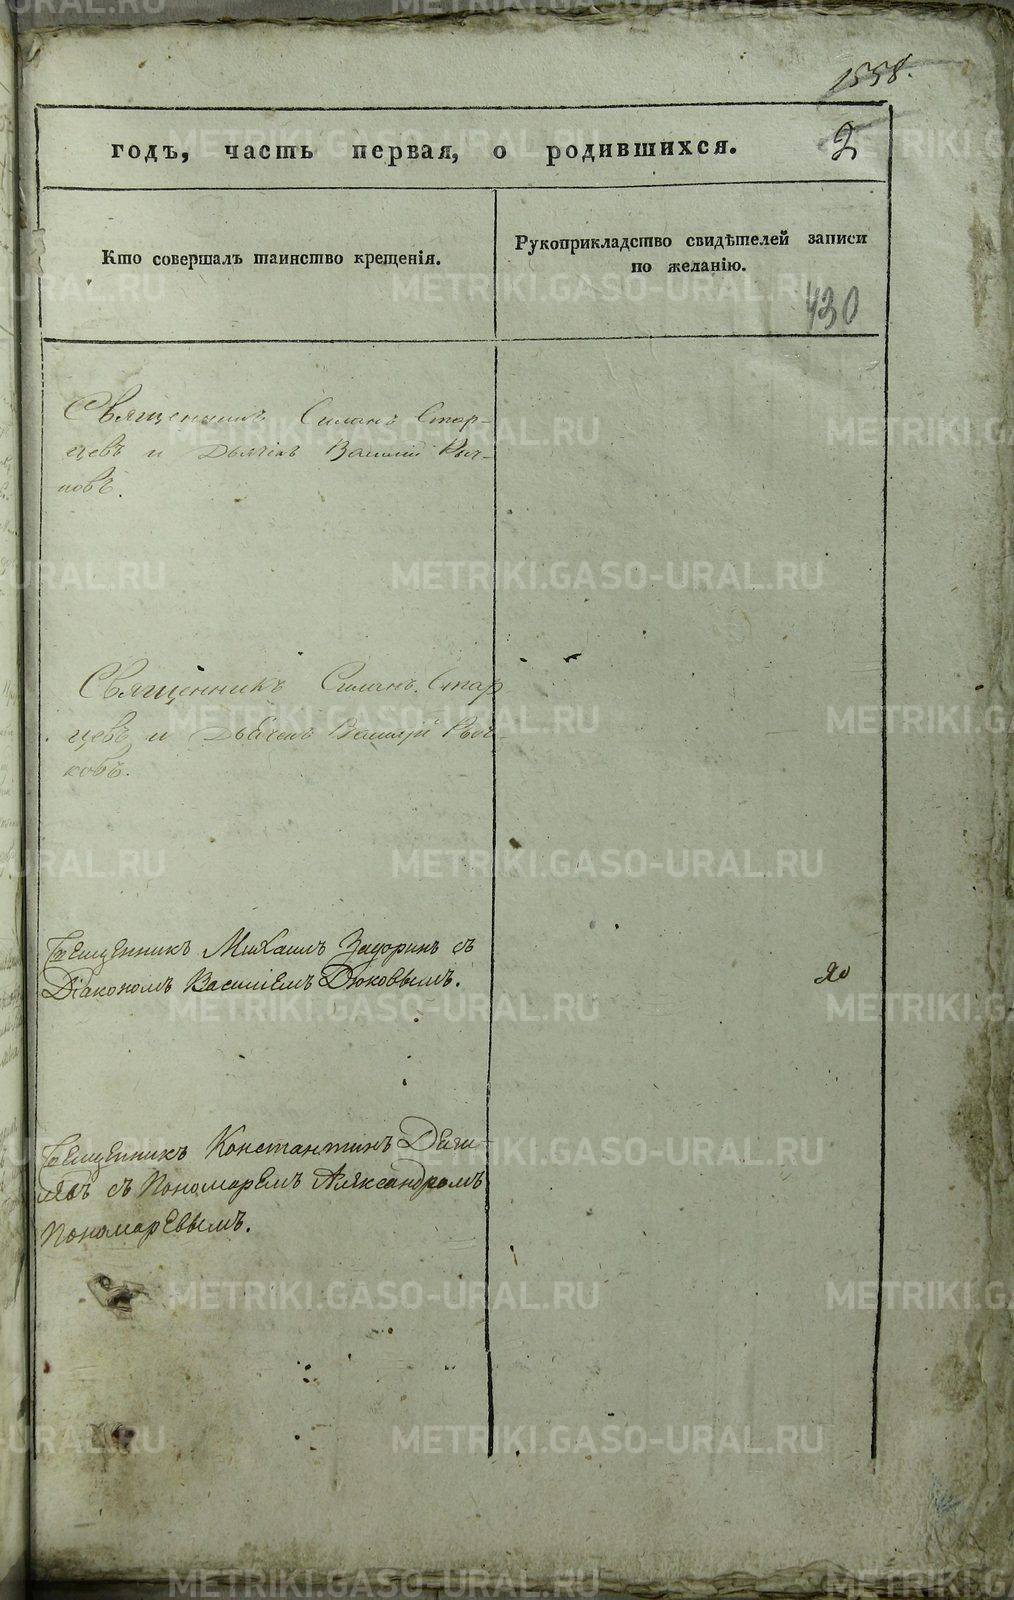 1558.
годъ, часть первая, о родившихся.
2
Кто совершалъ таинство крещенія.
Рукоприкладство свидѣтелей записи
по желанію.
430
Священникъ Силанъ Стар-
цевъ и Дьячекъ Василій Рыч-
ковъ.
Священникъ Силанъ Стар
цевъ и Дьячекъ Василій Рыч-
ковъ.
Священникъ Михаилъ Задоринъ съ
Діакономъ Василіемъ Дюковымъ.
Священникъ Константинъ
съ Пономаремъ Александромъ
Пономаревымъ.
METRIKI.GASO-URAL.RU